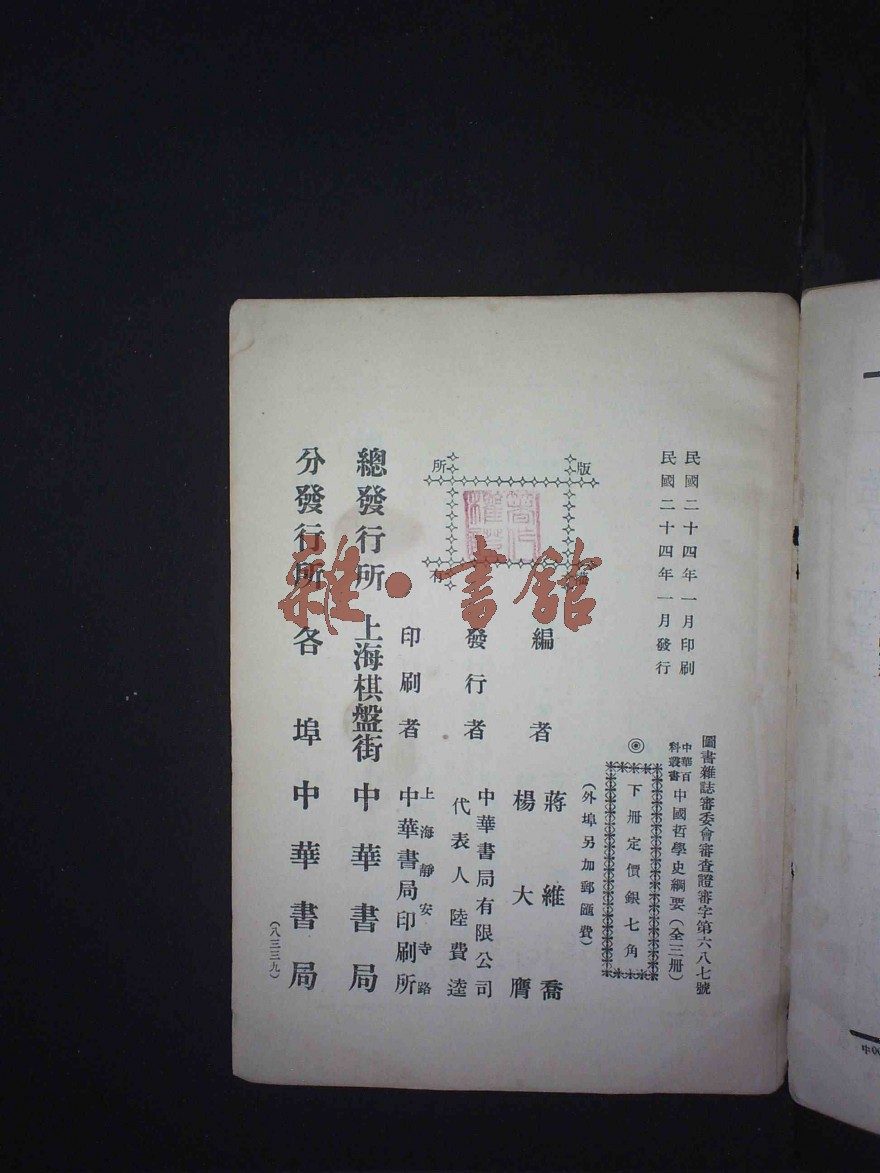 民國二十四年一月印刷
民國二十四年一月發行
圖書雜誌審委會審查證審字第六八七號
中華百科叢書 中國哲學史綱要（全三冊）
◎下冊定價銀七角
（外埠另加郵匯費）
版
所
有
編者 蔣維喬
楊大膺
發行者 中華書局有限公司
代表人 陸費逵
印刷者 上海靜安寺路
中華書局印刷所
總發行所 上海棋盤街 中華書局
分發行所 各埠中華書局
（八三三九）
雜·書館